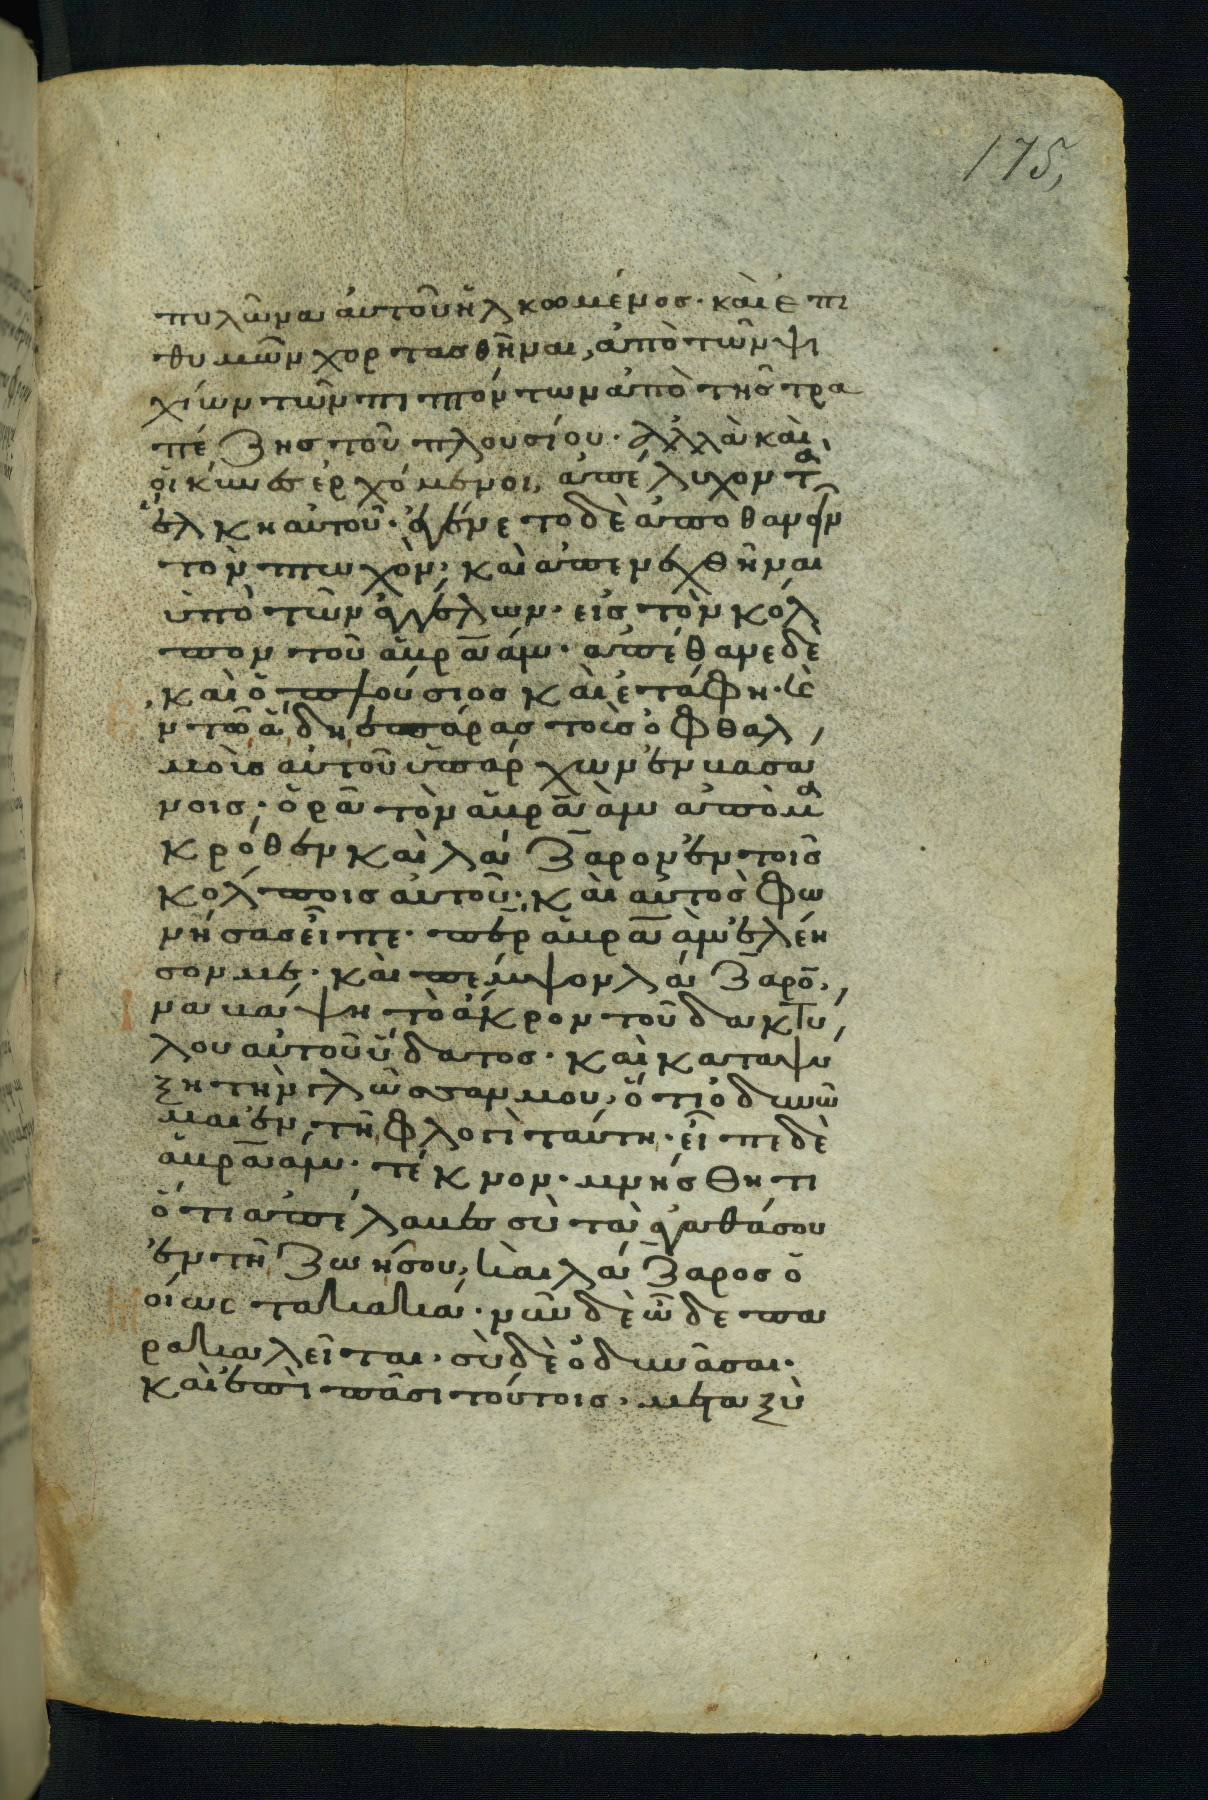 175,
πυλῶνα αὐτοῦ ἡλκωμένος· καὶ ἐπι
θυμῶν χορτασθῆναι, ἀπὸ τῶν ψι
χίων τῶν πιπτόντων ἀπὸ τῆς τρα
πέζης τοῦ πλουσίου· ἀλλὰ καὶ
οἱ κύνες ἐρχόμενοι, ἀπέλιχον τὰ
ἕλκη αὐτοῦ· ἐγένετο δὲ ἀποθανεῖν
τὸν πτωχὸν· καὶ ἀπενεχθῆναι
ὑπὸ τῶν ἀγγέλων· εἰς τὸν κόλ
πον τοῦ ἀβραάμ· ἀπέθανε δὲ
καὶ ὁ πλούσιος καὶ ἐτάφη· καὶ ἐ
ν τῶ ἅδη ἐπάρας τοὺς ὀφθαλ
μοὺς αὐτοῦ ὑπάρχων ἐν βασά
νοις· ὁρᾶ τὸν ἀβραὰμ ἀπὸ μα
κρόθεν καὶ λάζαρον ἐν τοῖς
κόλποις αὐτοῦ· καὶ αὐτὸς φω
νήσας εἶπε· περ ἀβραὰμ ἐλέη
σόν με· καὶ πέμψον λάζαρον,
ἵνα βάψη τὸ ἄκρον τοῦ δακτύ
λου αὐτοῦ ὕδατος· καὶ καταψύ
ξη τὴν γλῶσσαν μου, ὅτι ὀδυνῶ
μαι ἐν τῆ φλογὶ ταύτη· εἶπε δὲ
ἀβραάμ· τέκνον· μνήσθητι
ὅτι ἀπέλαβες σὺ τὰ ἀγαθά σου
ἐν τῆ ζωῆ σου, καὶ λάζαρος ὁ
μοίως τὰ κακά· νῦν δὲ ὧδε πα
ρακαλεῖται· σὺ δὲ ὀδυνᾶσαι·
καὶ ἐπὶ πᾶσι τούτοις· μεταξὺ